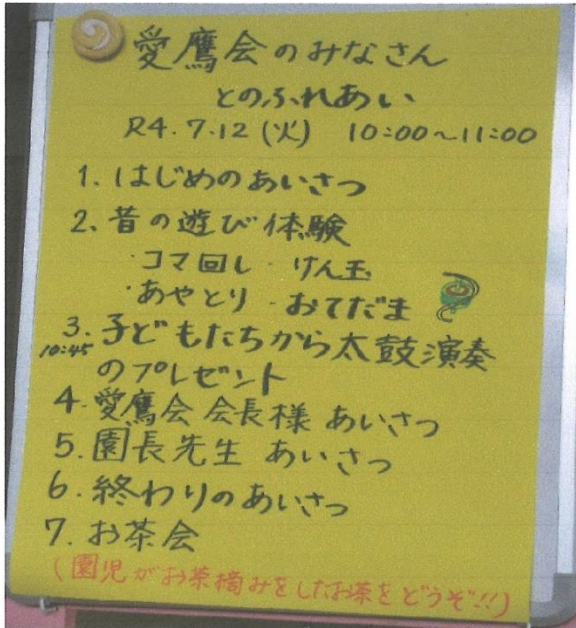 愛鷹会のみなさん
とのふれあい
R4.7.12(火) 10:00〜11:00
1.はじめのあいさつ
2.昔の遊び体験
・コマ回し・けん玉
・あやとり・おてだま
3.子どもたちから太鼓演奏
10:45
のプレゼント
4.愛鷹会 会長様 あいさつ
5.園長先生 あいさつ
6.終わりのあいさつ
7.お茶会
(園児がお茶摘みをしたお茶をどうぞ!!)